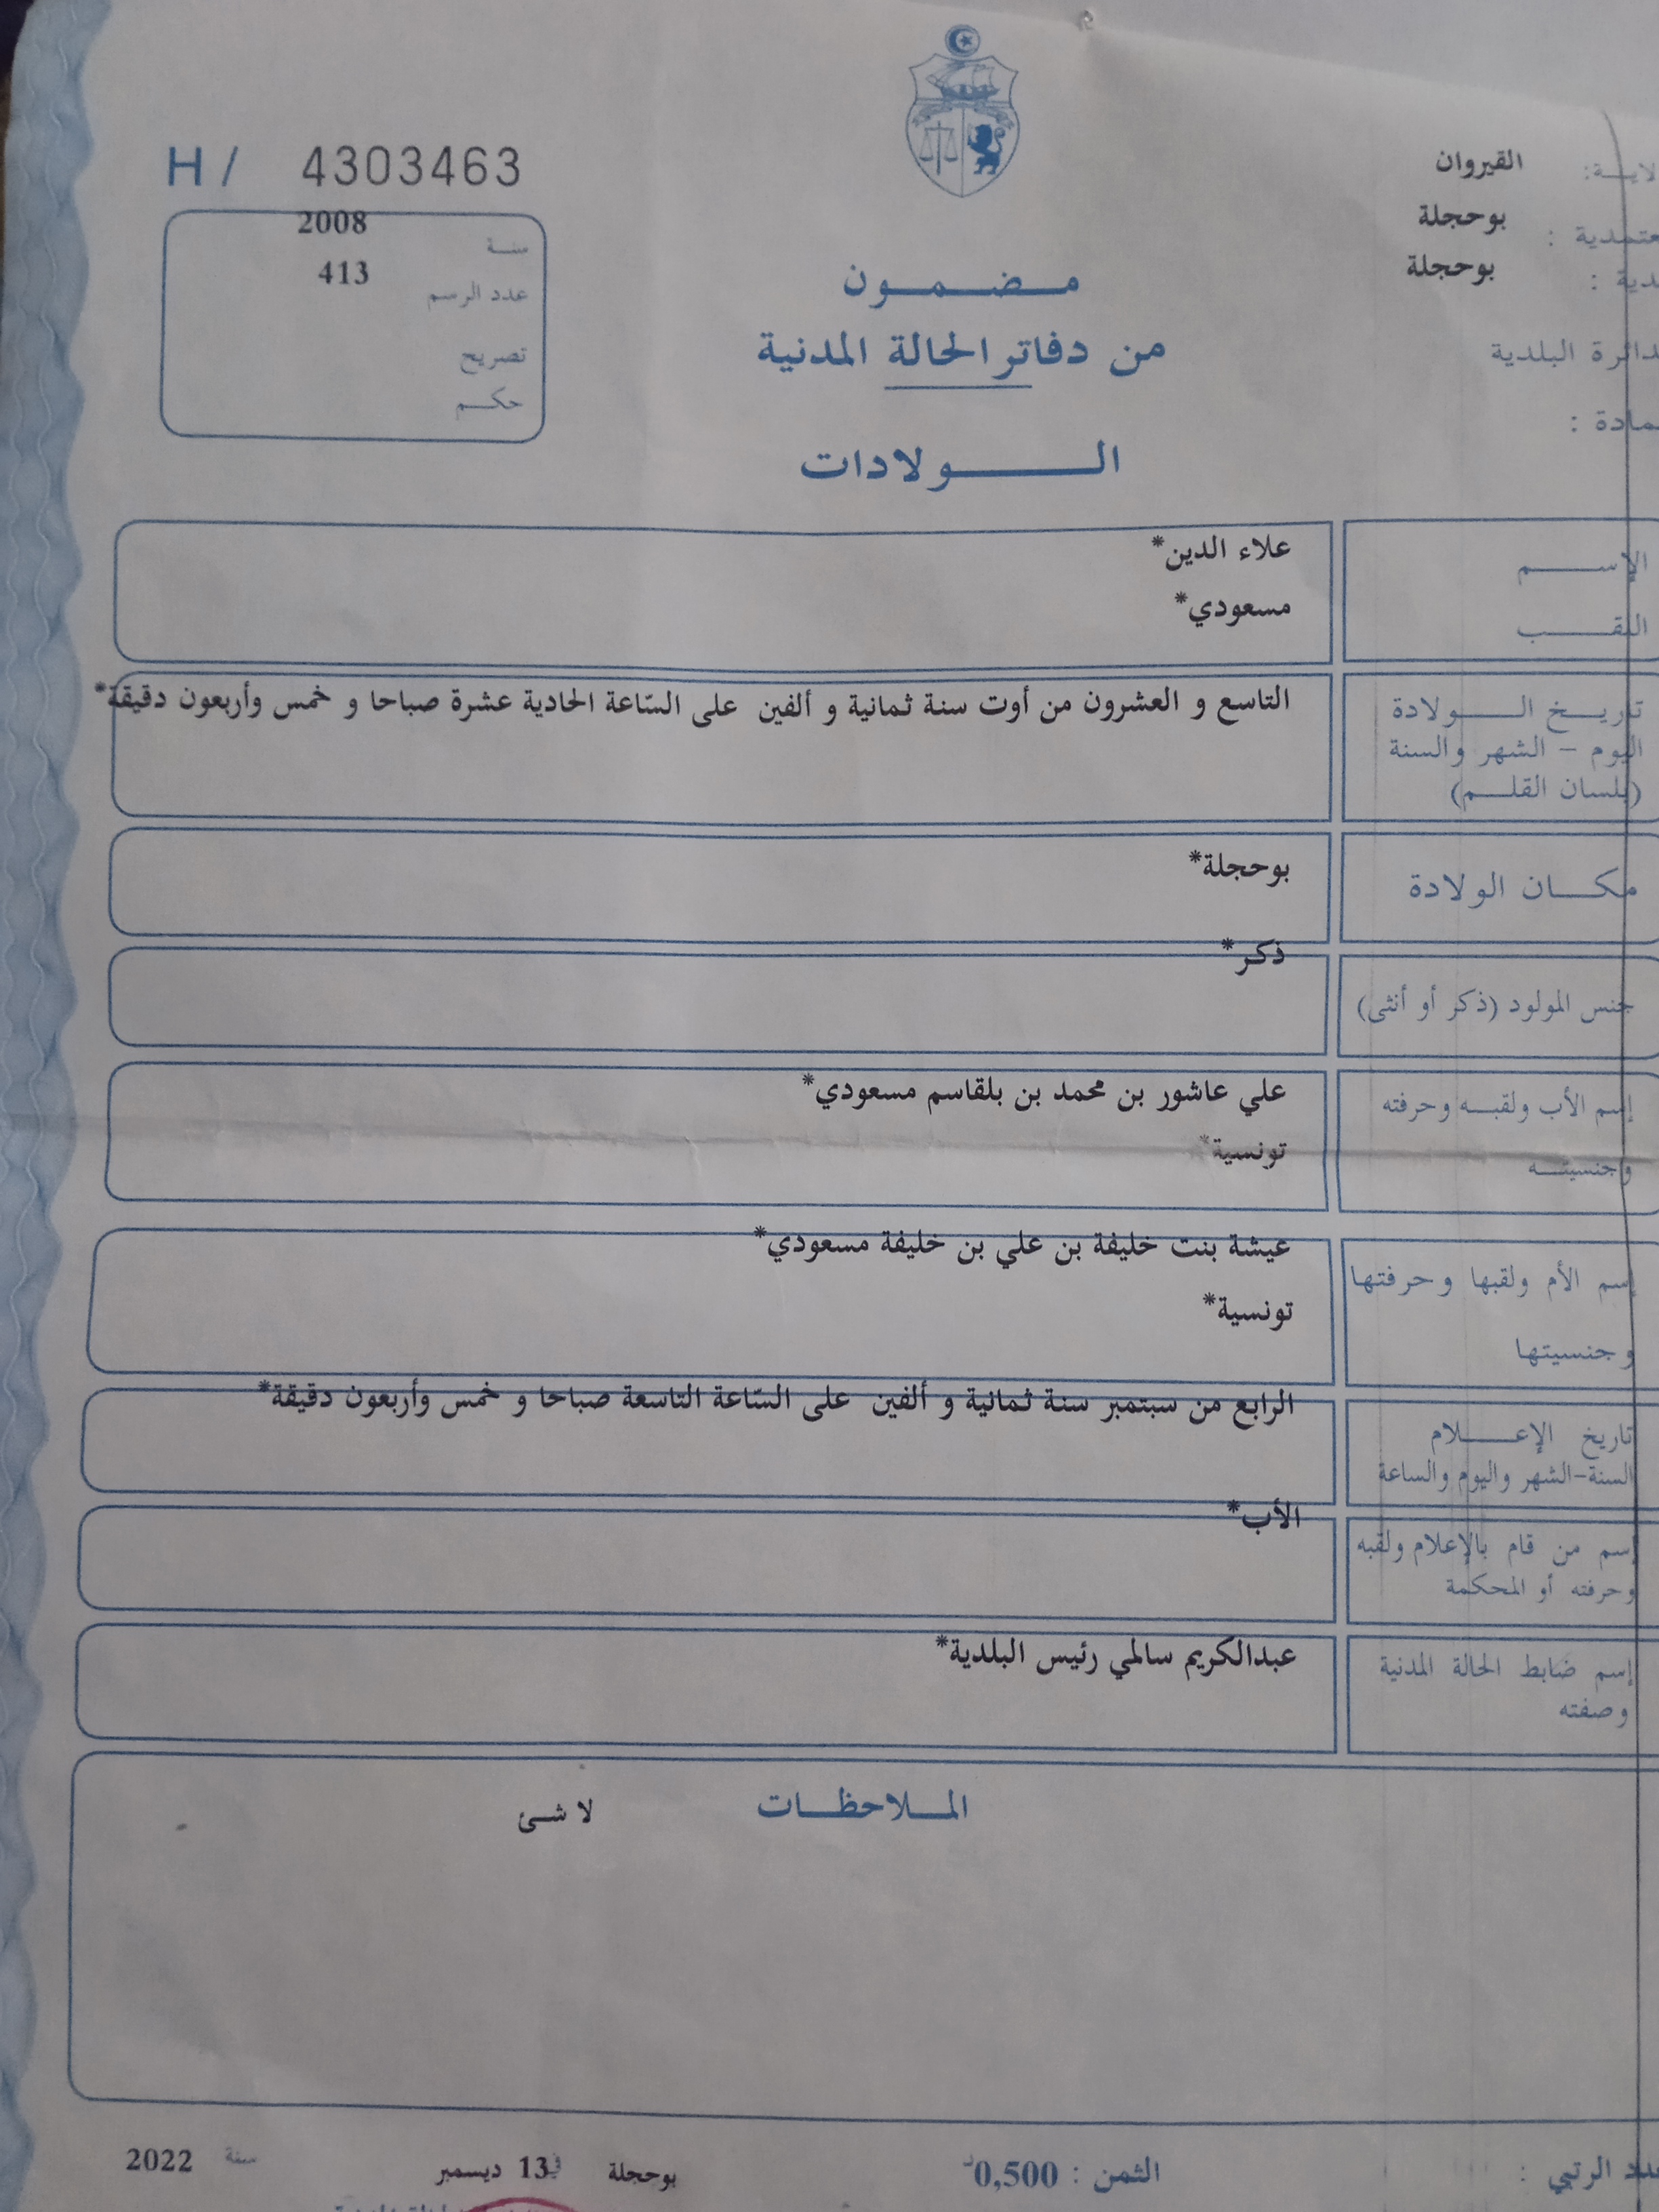 H / 4303463
القيروان
بوحجلة
بوحجلة
2008
سنة
413
عدد الرسم
تصريح
حكم
مضمون
من دفاتر الحالة المدنية
الولادات
دائرة البلدية
الإسم
علاء الدين*
اللقب
مسعودي*
تاريخ الولادة
اليوم - الشهر والسنة
(بلسان القلم)
التاسع و العشرون من أوت سنة ثمانية و ألفين على السّاعة الحادية عشرة صباحا و خمس وأربعون دقيقة*
مكان الولادة
بوحجلة*
جنس المولود (ذكر أو أنثى)
ذكر*
إسم الأب ولقبه وحرفته
وجنسيته
علي عاشور بن محمد بن بلقاسم مسعودي*
تونسية*
إسم الأم ولقبها وحرفتها
وجنسيتها
عيشة بنت خليفة بن علي بن خليفة مسعودي*
تونسية*
تاريخ الإعلام
السنة-الشهر واليوم والساعة
الرابع من سبتمبر سنة ثمانية و ألفين على السّاعة التاسعة صباحا و خمس وأربعون دقيقة*
إسم من قام بالإعلام ولقبه
وحرفته أو المحكمة
الأب*
إسم ضابط الحالة المدنية
وصفته
عبدالكريم سالمي رئيس البلدية*
الملاحظات
لا شئ
الرتبي :
الثمن : 0,500د
بوحجلة في 13 ديسمبر سنة 2022